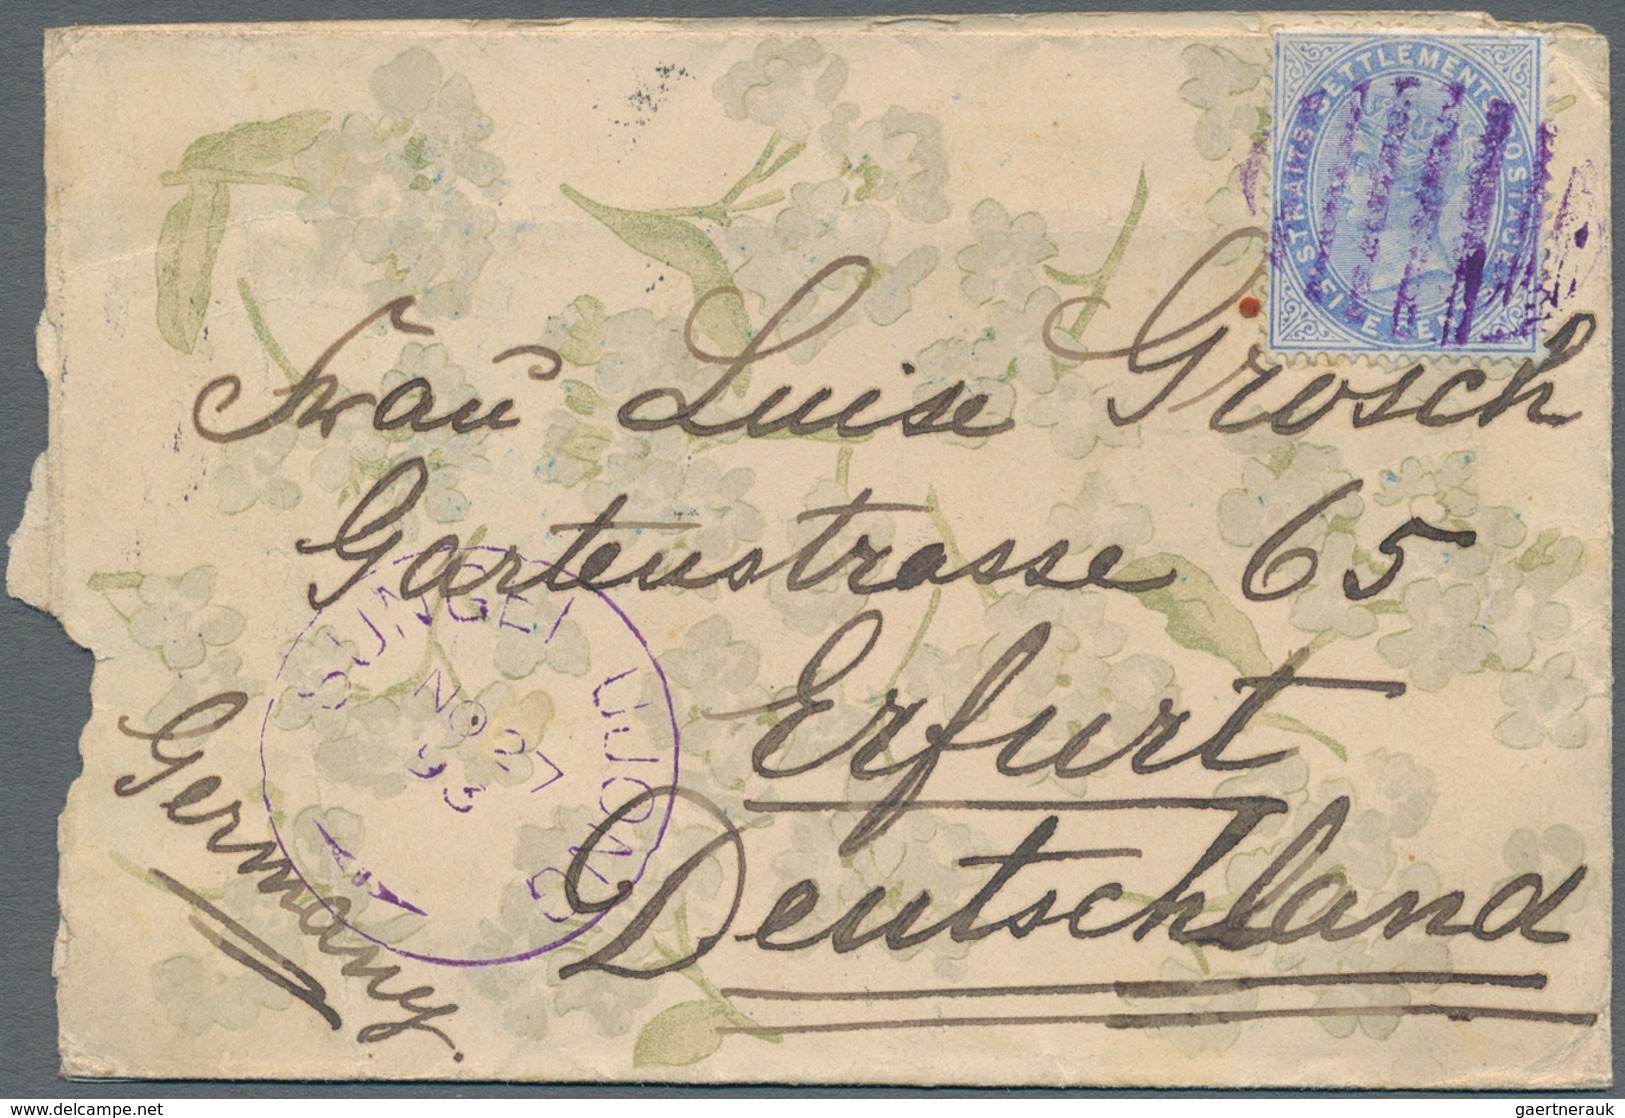 STRAITS SETTLEMENTS POSTAGE
FIVE CEN
Frau Luise Grosch
Gartenstrasse 65
Erfurt
Deutschland
Germany.
SUNGEI UJONG
NO 27
95
© www.delcampe.net
gaertnerauk